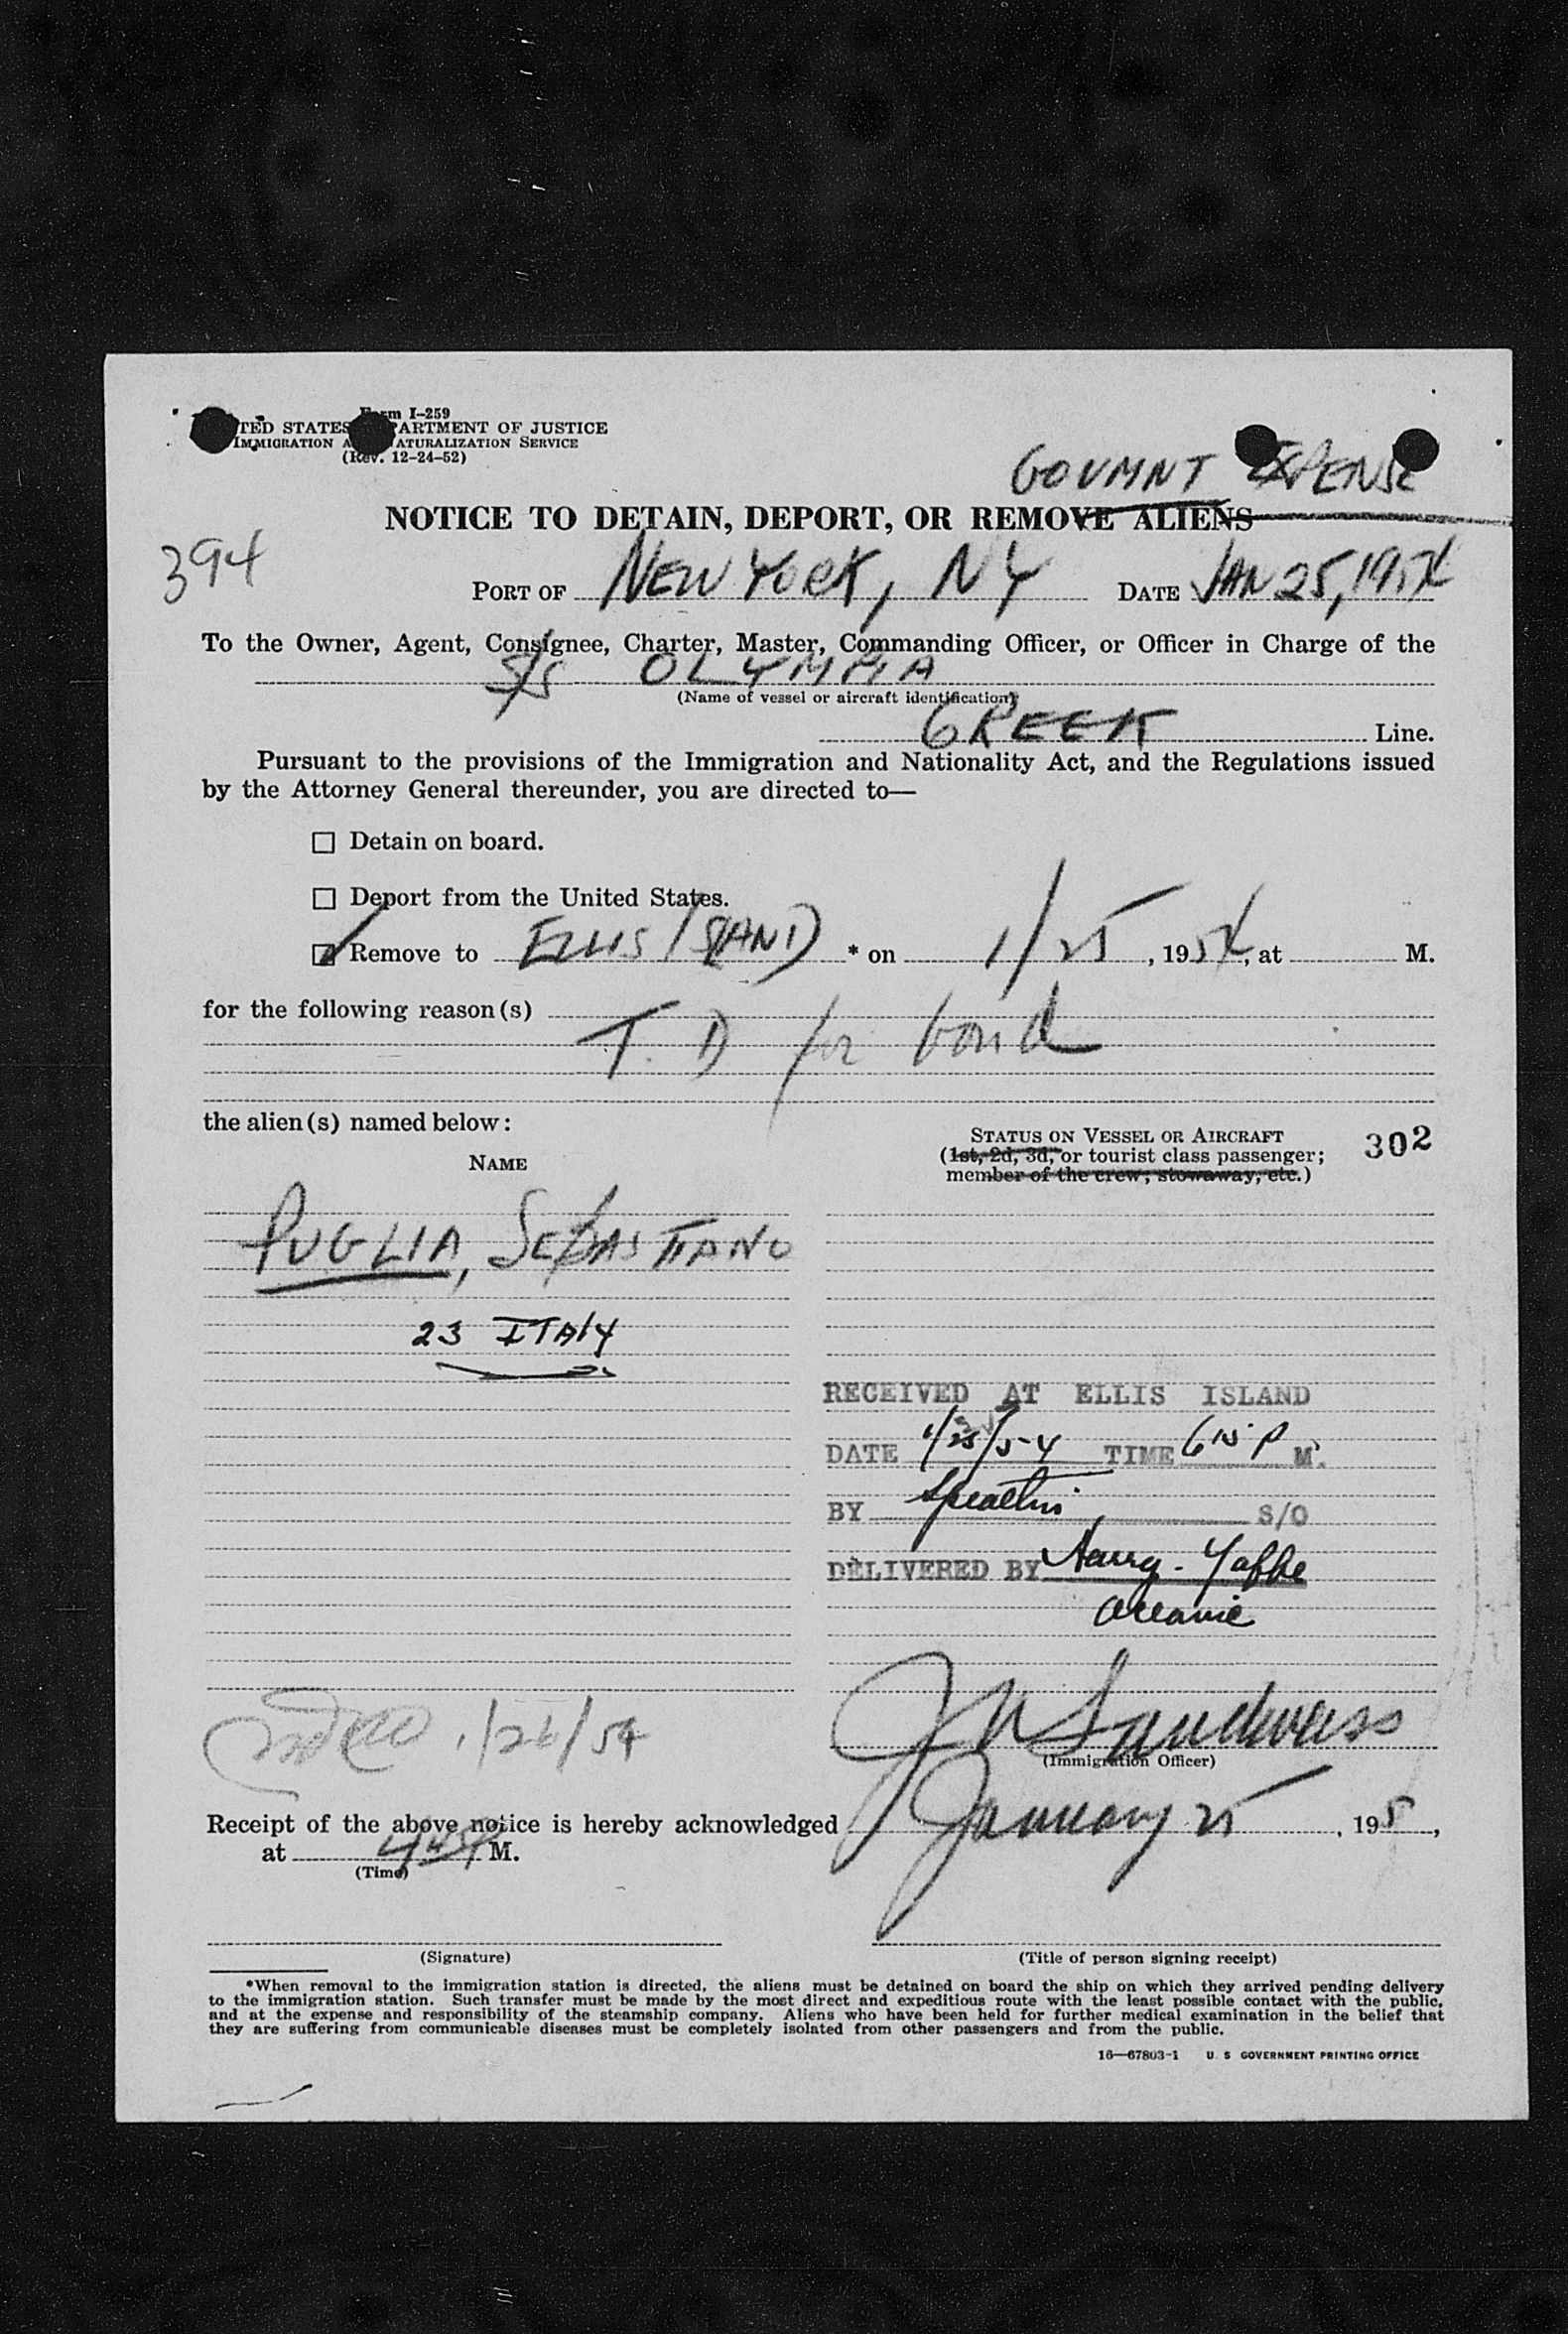 Form I-259
UNITED STATES DEPARTMENT OF JUSTICE
IMMIGRATION AND NATURALIZATION SERVICE
(Rev. 12-24-52)
GOVMNT EXPENSE
NOTICE TO DETAIN, DEPORT, OR REMOVE ALIENS
394
PORT OF NEW YORK, NY DATE JAN 25, 1954
To the Owner, Agent, Consignee, Charter, Master, Commanding Officer, or Officer in Charge of the
S/S OLYMPIA
(Name of vessel or aircraft identification)
GREEK Line.
Pursuant to the provisions of the Immigration and Nationality Act, and the Regulations issued
by the Attorney General thereunder, you are directed to—
Detain on board.
Deport from the United States.
Remove to ELLIS ISLAND * on 1/25, 1954, at M.
for the following reason(s)
T. D for bond
the alien(s) named below:
NAME
STATUS ON VESSEL OR AIRCRAFT
(1st, 2d, 3d, or tourist class passenger;
member of the crew; stowaway, etc.)
302
PUGLIA, SEBASTIANO
23 ITALY
RECEIVED AT ELLIS ISLAND
DATE 1/25/54 TIME 6 15 P M.
BY S/O
DELIVERED BY Harry Yaffe
Oceanic
1/26/54
(Immigration Officer)
Receipt of the above notice is hereby acknowledged January 25, 195,
at M.
(Time)
(Signature)
(Title of person signing receipt)
*When removal to the immigration station is directed, the aliens must be detained on board the ship on which they arrived pending delivery
to the immigration station. Such transfer must be made by the most direct and expeditious route with the least possible contact with the public,
and at the expense and responsibility of the steamship company. Aliens who have been held for further medical examination in the belief that
they are suffering from communicable diseases must be completely isolated from other passengers and from the public.
16—67803-1 U. S GOVERNMENT PRINTING OFFICE